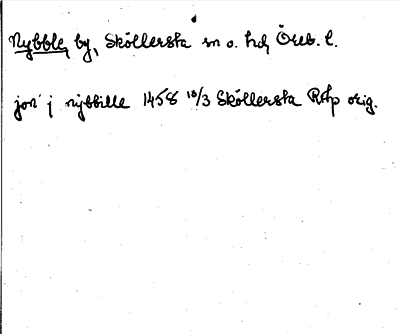 Nybble, by, Sköllersta sn o. hd, Öreb. l.
jon j nybbille 1458 18/3 Sköllersta RAp orig.